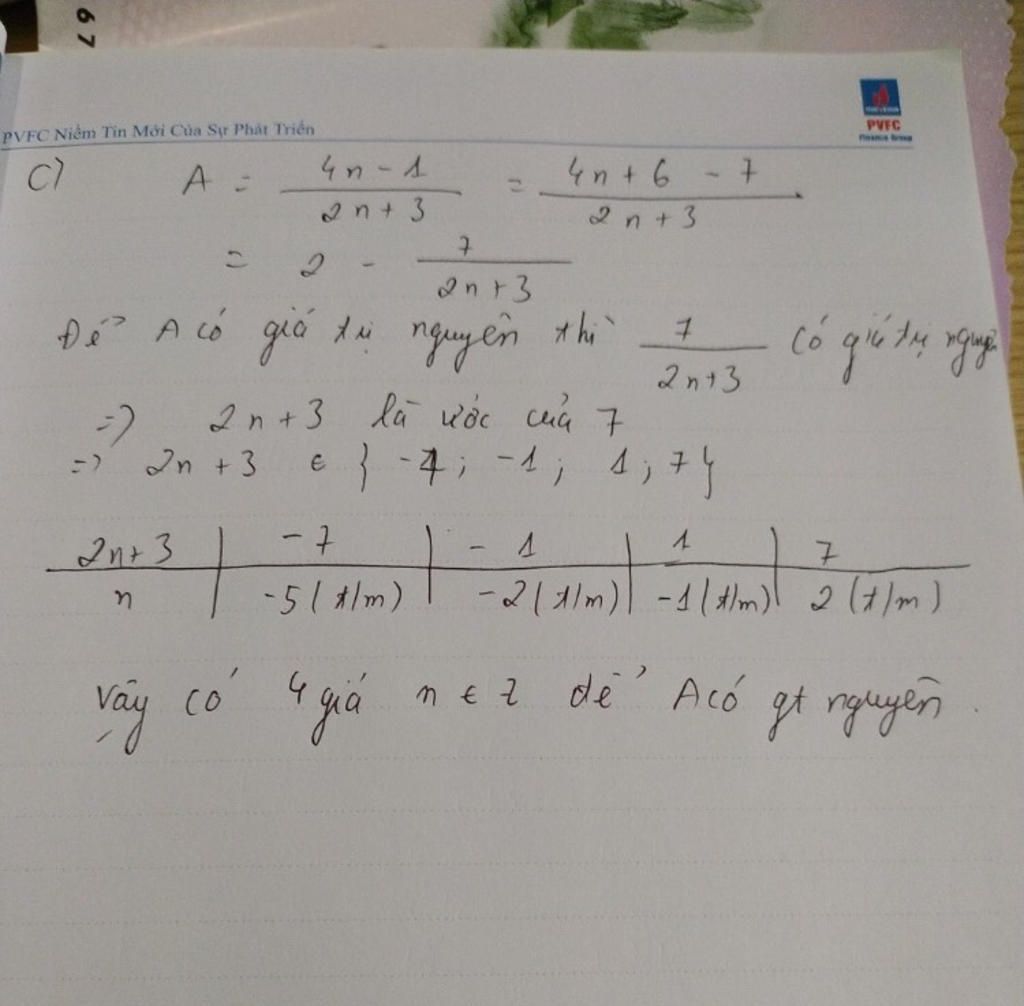 67
PVFC Niềm Tin Mới Của Sự Phát Triển
PVFC
Finance Group
c) A = (4n - 1)/(2n + 3) = (4n + 6 - 7)/(2n + 3)
= 2 - 7/(2n + 3)
Để A có giá trị nguyên thì 7/(2n+3) có giá trị nguyên
=> 2n + 3 là ước của 7
=> 2n + 3 ∈ { -7; -1; 1; 7 }
2n+3 | -7 | -1 | 1 | 7
n | -5 (t/m) | -2 (t/m) | -1 (t/m) | 2 (t/m)
Vậy có 4 giá n ∈ Z để A có gt nguyên.